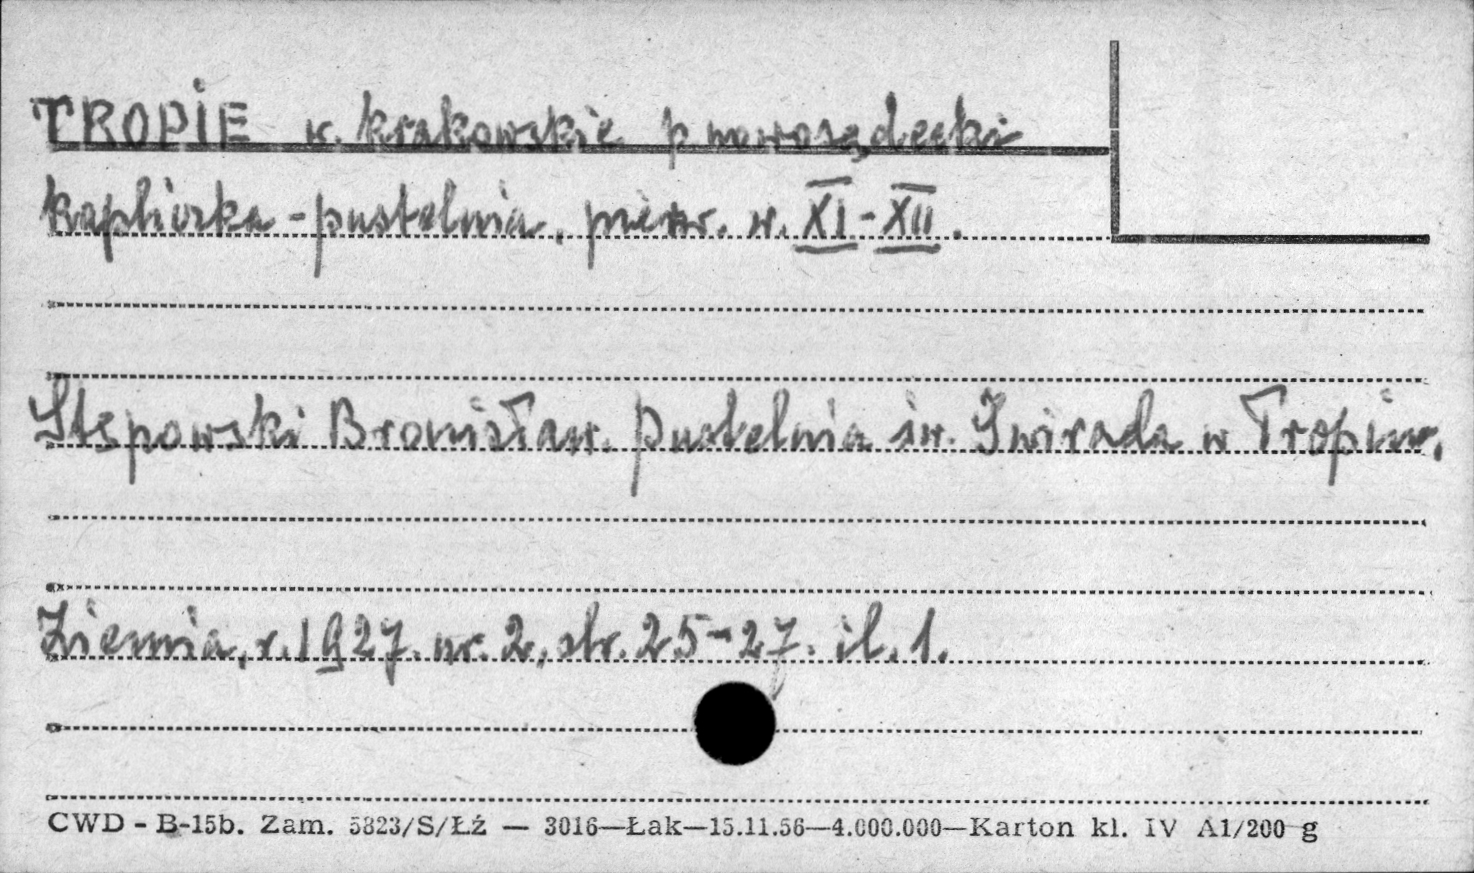 TROPIE w. krakowskie p. nowosądecki
kapliczka-pustelnia, pierw. w. XI-XII.
Stępowski Bronisław. Pustelnia św. Świrada w Tropiu.
Ziemia, r. 1927. nr. 2, str. 25-27. il. 1.
CWD - B-15b. Zam. 5823/S/Łź — 3016—Łak—15.11.56—4.000.000—Karton kl. IV A1/200 g